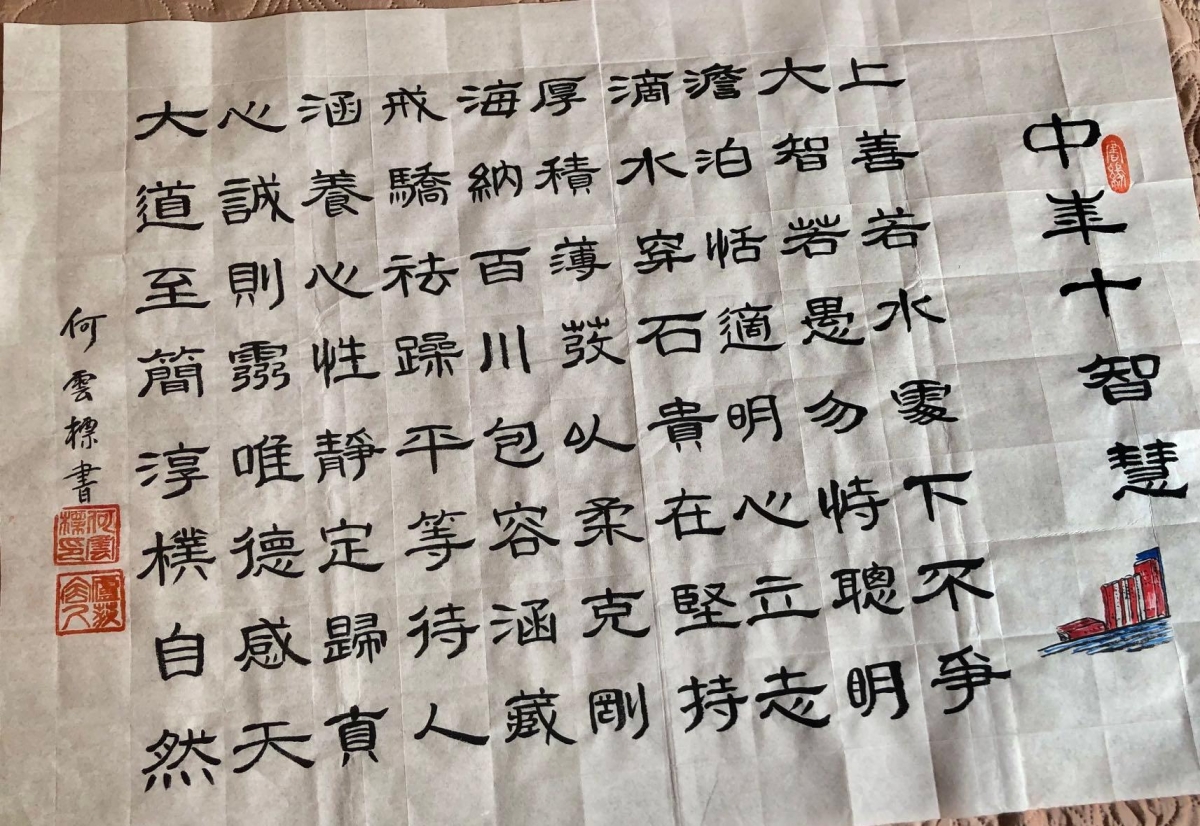 中年十智慧
上善若水處下不爭
大智若愚勿恃聰明
澹泊恬適明心立志
滴水穿石貴在堅持
厚積薄發以柔克剛
海納百川包容涵藏
戒驕祛躁平等待人
涵養心性靜定歸真
心誠則靈唯德感天
大道至簡淳樸自然
何雲標書
何雲標印